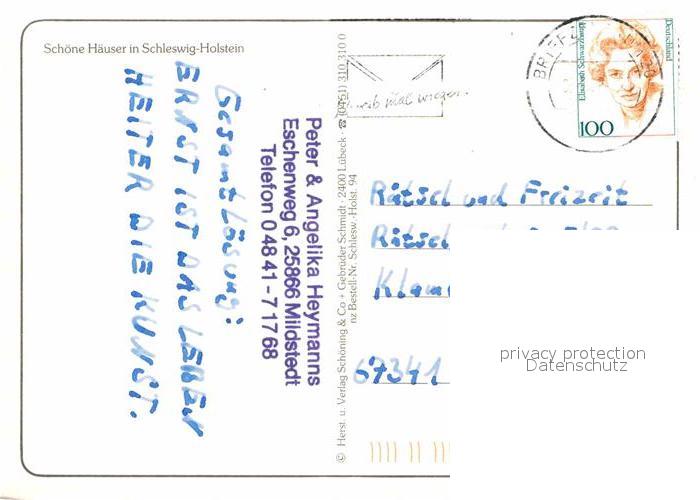 Schöne Häuser in Schleswig-Holstein
Gesamtlösung:
ERNST IST DAS LEBEN
HEITER DIE KUNST.
Peter & Angelika Heymanns
Eschenweg 6, 25866 Mildstedt
Telefon 0 48 41 - 7 17 68
© Herst. u. Verlag Schöning & Co + Gebrüder Schmidt · 2400 Lübeck · ☎ (0451) 310 310 0
nz Bestell-Nr. Schlesw.-Holst. 94
mal wieder
BRIEFZ
Deutschland
Elisabeth Schwarzhaupt
100
Rätsel und Freizeit
Rätsel
67341
privacy protection
Datenschutz